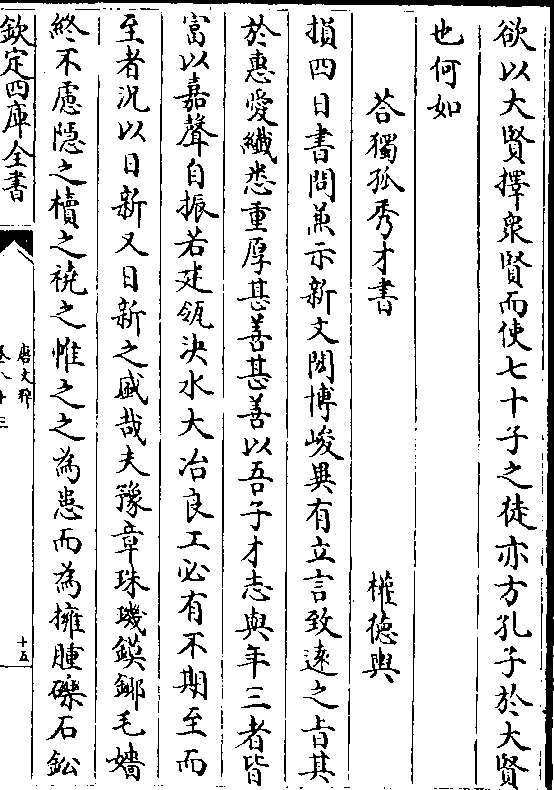 欲以大賢擇衆賢而使七十子之徒亦方孔子於大賢
也何如
荅獨孤秀才書 權徳輿
損四日書問兼示新文閎博峻異有立言致遠之㫖其
於惠愛纎悉重厚甚善甚善以吾子才志與年三者皆
富以嘉聲自振若建瓴決水大冶良工必有不期至而
至者況以日新又日新之盛哉夫豫章珠璣鏌鋣毛嬙
終不慮隠之櫝之襓之帷之之為患而為擁腫礫石鈆
欽定四庫全書
唐文粹
卷八十三
十五